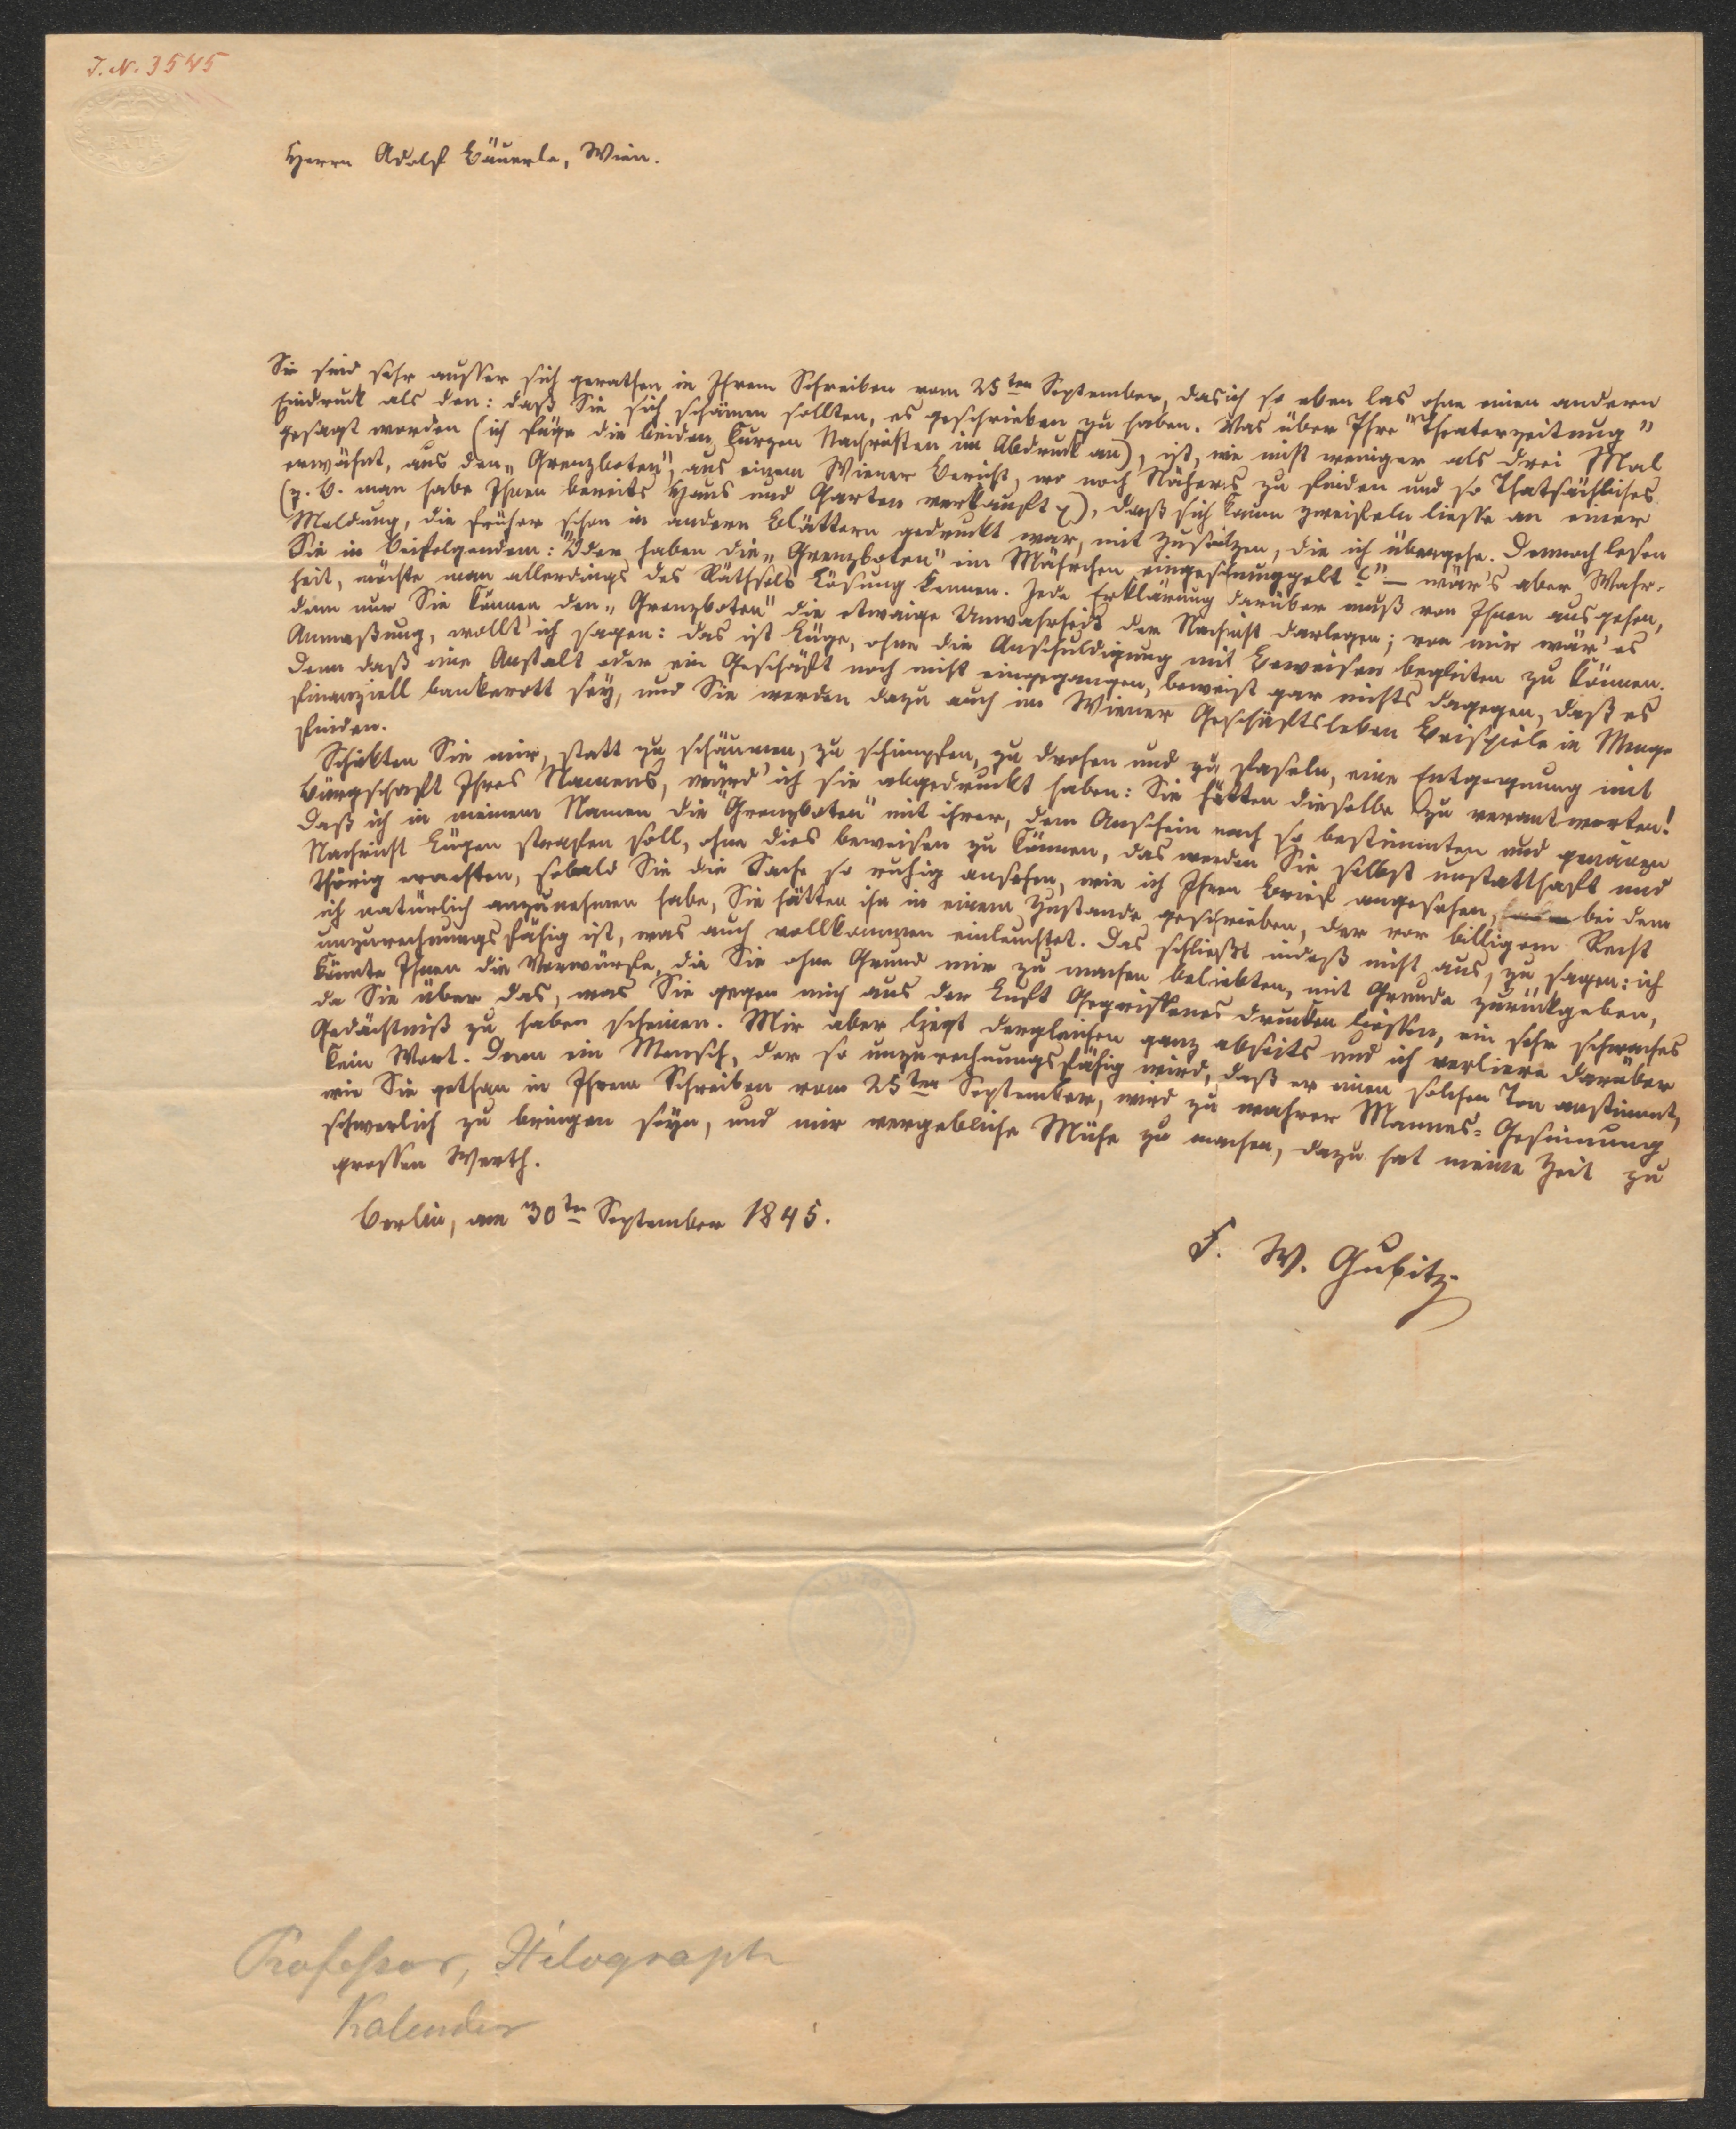 I. N. 3545
Herrn Adolf Bäuerle, Wien.
Sie sind sehr ausser sich gerathen in Ihrem Schreiben vom 25ten September, das ich so eben las ohne einen andern
Eindruck als den: daß Sie sich schämen sollten, es geschrieben zu haben. Was über Ihre "Theaterzeitung"
gesagt worden (ich füge die beiden kurzen Nachrichten im Abdruck an), ist, wie nicht weniger als drei Mal
erwähnt, aus den „Grenzboten", aus einem Wiener Bericht, wo noch Näheres zu finden und so Thatsächliches
(z. B. man habe Ihnen bereits Haus und Garten verkauft), daß sich kaum zweifeln liesse an einer
Meldung, die früher schon in andern Blättern gedruckt war, mit Zusätzen, die ich übergehe. Dennoch lesen
Sie in Beifolgendem: "Oder haben die „Grenzboten" ein Mährchen eingeschmuggelt?" — wär's aber Wahr-
heit, möchte man allerdings des Räthsels Lösung kennen. Jede Erklärung darüber muß von Ihnen ausgehen,
denn nur Sie können den „Grenzboten" die etwaige Unwahrheit der Nachricht darlegen; von mir wär' es
Anmaßung, wollt' ich sagen: das ist Lüge, ohne die Anschuldigung mit Beweisen begleiten zu können.
Denn daß eine Anstalt oder ein Geschäft noch nicht eingegangen, beweist gar nichts dagegen, daß es
finanziell bankerott sey, und Sie werden dazu auch im Wiener Geschäftsleben Beispiele in Menge
finden.
Schickten Sie mir, statt zu schäumen, zu schimpfen, zu drohen und zu faseln, eine Entgegnung mit
Bürgschaft Ihres Namens, würd' ich sie abgedruckt haben: Sie hätten dieselbe zu verantworten!
Daß ich in meinem Namen die "Grenzboten" mit ihrer, dem Anschein nach so bestimmten und genauen
Nachricht Lügen strafen soll, ohne dies beweisen zu können, das werden Sie selbst unstatthaft und
thörig erachten, sobald Sie die Sache so ruhig ansehen, wie ich Ihren Brief angesehen, bei dem
ich natürlich anzunehmen habe, Sie hätten ihn in einem Zustande geschrieben, der vor billigem Recht
unzurechnungsfähig ist, was auch vollkommen einleuchtet. Das schließt indeß nicht aus, zu sagen: ich
könnte Ihnen die Vorwürfe, die Sie ohne Grund mir zu machen beliebten, mit Grunde zurückgeben,
da Sie über das, was Sie gegen mich aus der Luft Gegriffenes drucken liessen, ein sehr schwaches
Gedächtniß zu haben scheinen. Mir aber liegt dergleichen ganz abseits und ich verliere darüber
kein Wort. Denn ein Mensch, der so unzurechnungsfähig wird, daß er einen solchen Ton anstimmt,
wie Sie gethan in Ihrem Schreiben vom 25ten September, wird zu wahrer Mannes-Gesinnung
schwerlich zu bringen seyn, und mir vergebliche Mühe zu machen, dazu hat meine Zeit zu
grossen Werth.
Berlin, am 30ten September 1845.
F. W. Gubitz
Professor, Xilograph
Kalender